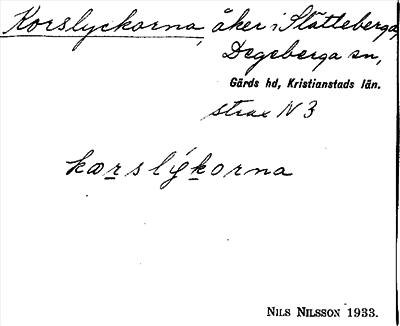 Korslyckorna, åker i Slätteberga,
Degeberga sn,
Gärds hd, Kristianstads län.
strax N 3
karslýkorna
NILS NILSSON 1933.